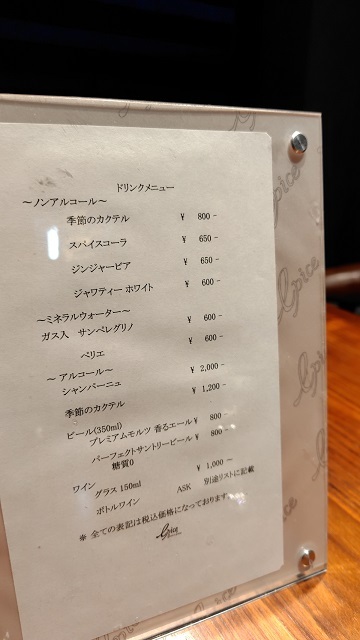 ドリンクメニュー
～ノンアルコール～
季節のカクテル ¥ 800 -
スパイスコーラ ¥ 650 -
ジンジャービア ¥ 650 -
ジャワティー ホワイト ¥ 600 -
～ミネラルウォーター～
ガス入 サンペレグリノ ¥ 600 -
ペリエ ¥ 600 -
～アルコール～
シャンパーニュ ¥ 2,000 -
季節のカクテル ¥ 1,200 -
ビール(350ml)
プレミアムモルツ 香るエール ¥ 800 -
パーフェクトサントリービール ¥ 800 -
糖質0
ワイン
グラス 150ml ¥ 1,000 ～
ボトルワイン ASK 別途リストに記載
※ 全ての表記は税込価格になっております。
Spice